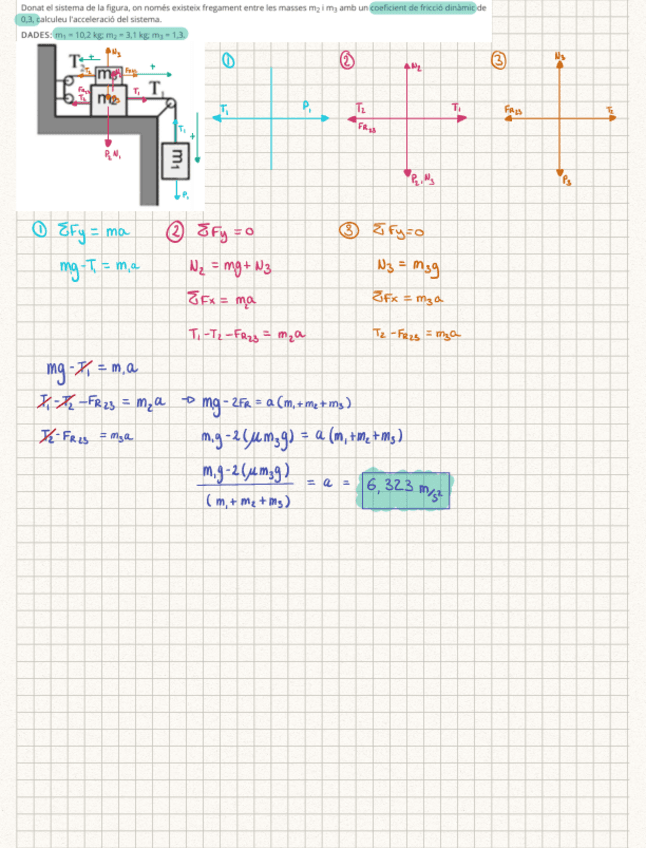 Donat el sistema de la figura, on només existeix fregament entre les masses m₂ i m₃ amb un coeficient de fricció dinàmic de
0,3, calculeu l'acceleració del sistema.
DADES: m₁ = 10,2 kg; m₂ = 3,1 kg; m₃ = 1,3.
N₃
T
T₂
+
m₃
+
m₂
T₁
T
T₁
+
P₂ N₃
m1
P₁
①
T₁
P₁
②
N₂
T₂
T₁
FR₂₃
P₂, N₃
③
N₃
FR₂₃
T₂
P₃
① ΣFy = ma
mg-T₁ = m₁a
② ΣFy = 0
N₂ = mg + N₃
ΣFx = m₂a
T₁ - T₂ - FR₂₃ = m₂a
③ ΣFy=0
N₃ = m₃g
ΣFx = m₃a
T₂ - FR₂₃ = m₃a
mg - T₁ = m₁a
T₁ - T₂ - FR₂₃ = m₂a → mg - 2FR = a (m₁+m₂+m₃)
T₂ - FR₂₃ = m₃a m₁g - 2(μm₃g) = a (m₁+m₂+m₃)
m₁g - 2(μm₃g)
(m₁ + m₂ + m₃)
= a = 6,323 m/s²